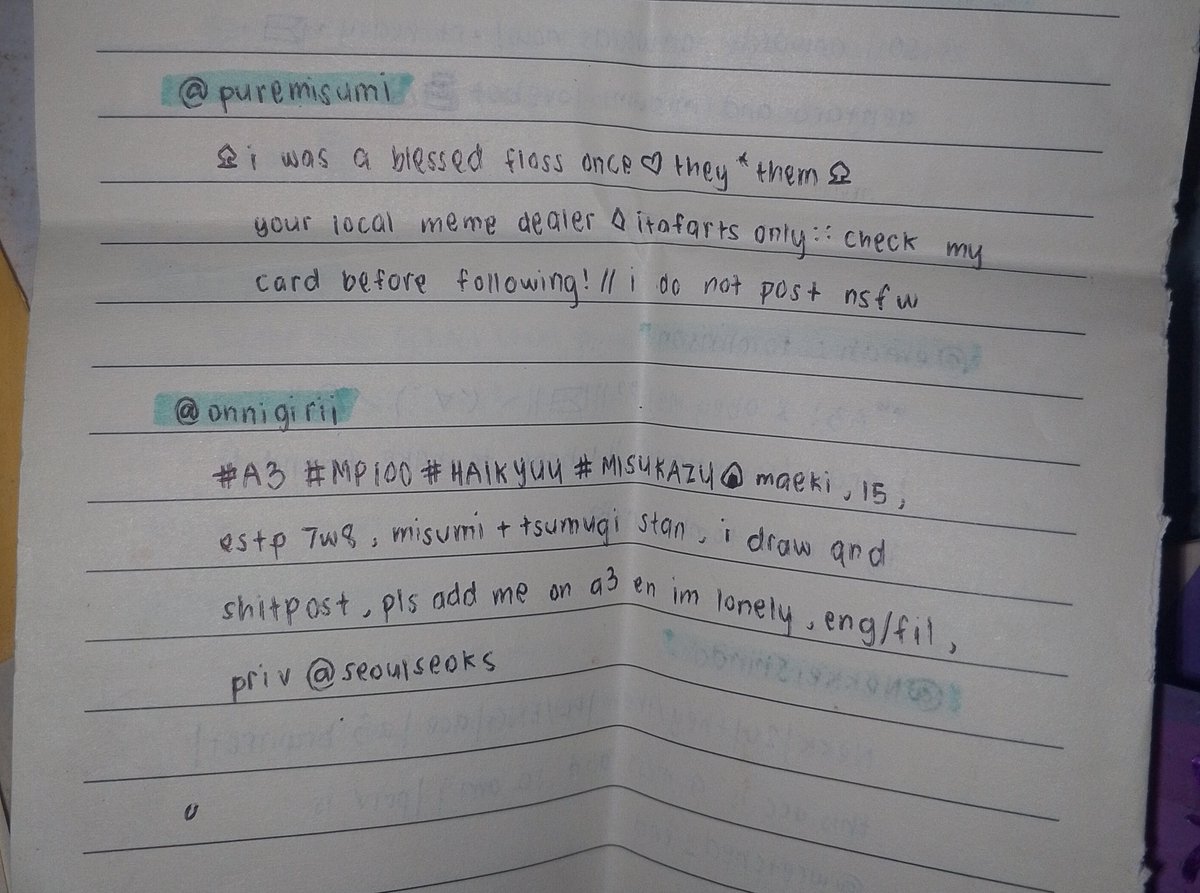 @puremisumi
i was a blessed floss once ♡ they * them
your local meme dealer itafarts only :: check my
card before following! // i do not post nsfw
@onnigirii
#A3 #MP100 #HAIKYUU #MISUKAZU maeki, 15,
estp 7w8, misumi + tsumugi stan, i draw and
shitpost, pls add me on a3 en im lonely, eng/fil,
priv @seoulseoks